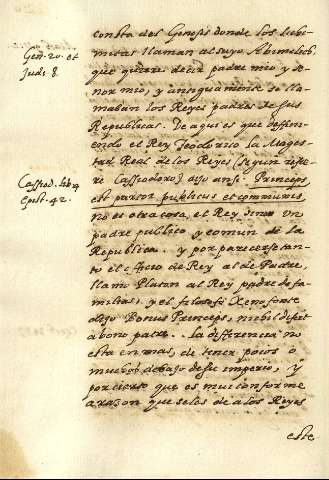 consta del Genesis donde los Jubi-
mitas llaman al suyo Abimelech
Gen. 20. et
Judi. 8.
que quiere decir padre mio y se-
nor mio, y antiguamente se lla-
maban los Reyes padres de sus
Republicas. De aqui es que diffini-
endo el Rey Teodorico la Mages-
tad Real de los Reyes (segun refie-
re Cassiodoro) dijo ansi. Princeps
Cassiod. lib. 4
Epist. 42.
est pastor publicus et communis
no es otra cosa, el Rey sino un
padre publico y comun de la
Republica. y por parecerse tan-
to el officio de Rey al de Padre,
llamo Platon al Rey padre de fa-
milias, y el filosofo Xenofonte
dijo Bonus Princeps, nihil differt
a bono patre. La differencia no
esta en mas, de tener pocos o
muchos debajo de su imperio, y
por cierto que es mui conforme
a razon que se les de a los Reyes
este